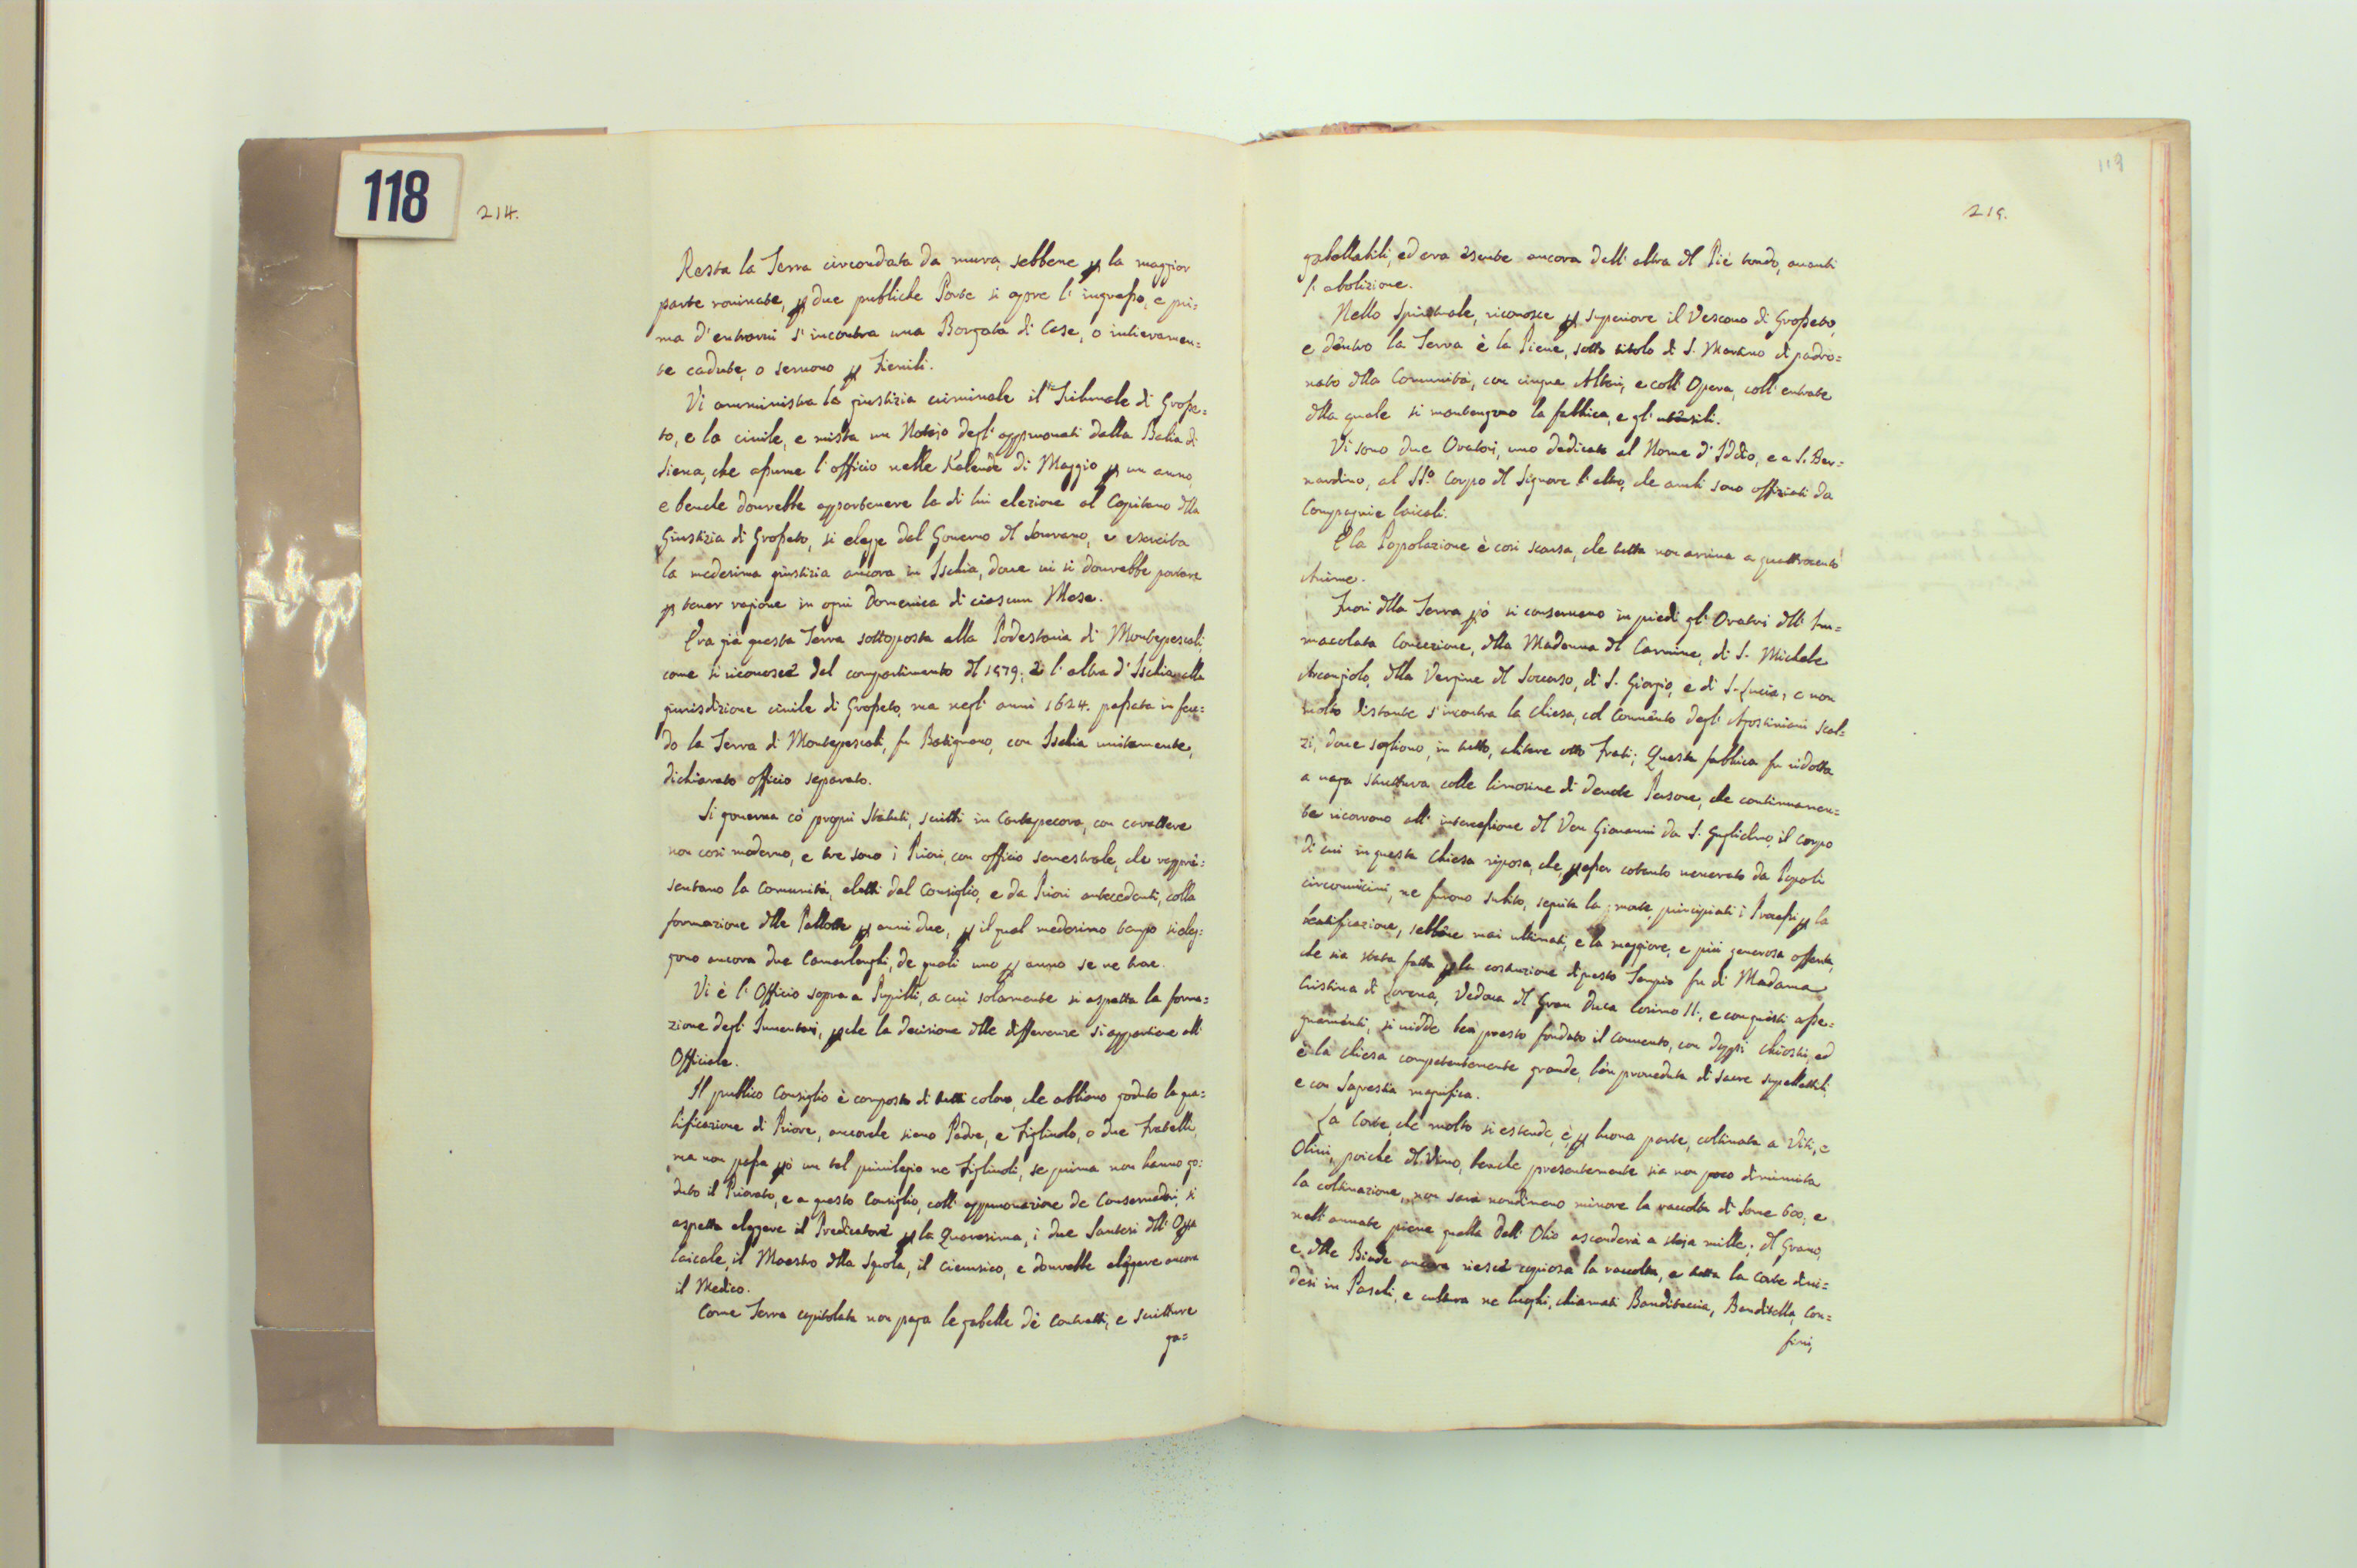 118
214.
Resta la Terra circondata da mura, sebbene p la maggior
parte rovinate, p due pubbliche Porte si apre l'ingresso, e pri=
ma d'entrarvi s'incontra una Borgata di Case, o intieramen=
te cadute, o servono p Fienili.
Vi amministra la giustizia criminale il Tribunale di Grosse=
to, e la civile, e mista un Notajo degl'approvati dalla Balia di
Siena, che assume l'officio nelle Kalende di Maggio p un anno,
e benche dovrebbe appartenere la di lui elezione al Capitano dlla
Giustizia di Grosseto, si elegge dal Governo dl Sovrano, e esercita
la medesima giustizia ancora in Ischia, dove vi si dovrebbe portare
p tener ragione in ogni Domenica di ciascun Mese.
Era già questa Terra sottoposta alla Podestaria di Montepescali,
come si riconosce dal compartimento dl 1579, e l'altra d'Ischia alla
giurisdizione civile di Grosseto, ma negl'anni 1624. passata in feu=
do la Terra di Montepescali, fu Batignano, con Ischia unitamente,
dichiarato officio separato.
Si governa co' proprii Statuti, scritti in Cartapecora, con carattere
non così moderno, e tre sono i Priori, con officio semestrale, che rappre=
sentano la Comunità, eletti dal Consiglio, e da Priori antecedenti, colla
formazione dlle Pallotte p anni due, p il qual medesimo tempo si eleg=
gono ancora due Camarlenghi, de quali uno p anno se ne trae.
Vi è l'Officio sopra a Pupilli, a cui solamente si aspetta la forma=
zione degl'Inventari, p che la decisione dlle differenze si appartiene all'
Officiale.
Il publico Consiglio è composto di tutti coloro, che abbiano goduto la qua=
lificazione di Priore, ancorche sieno Padre, e Figliuolo, o due Fratelli,
ma non passa pò un tal privilegio ne Figliuoli, se prima non hanno go=
duto il Priorato, e a questo Consiglio, coll'approvazione de Conservadori, si
aspetta eleggere il Predicatore p la Quaresima, i due Santesi dll'Opa
laicale, il Maestro dlla Squola, il Cierusico, e dovrebbe eleggere ancora
il Medico.
Come Terra capitolata non paga le gabelle de contratti, e scritture
ga=
119
215.
gabellabili, ed era esente ancora dall'altra dl Piè tondo, avanti
l'abolizione.
Nello Spirituale, riconosce p superiore il Vescovo di Grosseto,
e dentro la Terra è la Pieve, sotto titolo di S. Martino di padro=
nato dlla Comunità, con cinque Altari, e coll'Opera, coll'entrate
dlla quale si mantengono la fabbica, e gl'utensili.
Vi sono due Oratori, uno dedicato al Nome d'Iddio, e a S. Ber=
nardino, al SSo. Corpo dl Signore l'altro, che ambi sono offiziati da
Compagnie laicali.
E la Popolazione è così scarsa, che tutta non arriva a quattrocento
Anime.
Fuori dlla Terra pò si conservano in piedi gl'Oratori dll'Im=
macolata Concezione, dlla Madonna dl Carmine, di S. Michele
Arcangiolo, dlla Vergine dl Soccorso, di S. Giorgio, e di S. Lucia, e non
molto distante s'incontra la Chiesa, col Convento degl'Agostiniani Scal=
zi, dove sogliono, in tutto, abitare otto Frati; Questa fabbica fu ridotta
a vaga struttura colle limosine di devote Persone, che continuamen=
te ricorrono all'intercessione dl Ven Giovanni da S. Guglielmo, il Corpo
di cui in questa Chiesa riposa, che, p esser cotanto venerato da Popoli
circonvicini, ne furono subito, seguita la morte, principiati i Processi p la
beatificazione, sebbene mai ultimati, e la maggiore, e più generosa offerta,
che sia stata fatta p la costruzione di questo Tempio fu di Madama
Cristina di Lorena, Vedova dl Gran Duca Cosimo II, e con questi asse=
gnamenti, si vidde ben presto fondato il Convento, con doppii Chiostri, ed
è la Chiesa competentemente grande, ben proveduta di sacre supellettili,
e con Sagrestia magnifica.
La Corte, che molto si estende, è, p buona parte, coltivata a Viti, e
Olivi, poiche dl Vino, benche presentemente sia non poco diminuita
la coltivazione, non sarà nondimeno minore la raccolta di Some 600, e
nell'annate piene quella dell'Olio ascenderà a staja mille; dl Grano,
e dlle Biade ancora riesce copiosa la raccolta, e tutta la Corte divi=
desi in Pascoli, e cultura ne luoghi, chiamati Banditaccia, Banditella, Con=
fini,